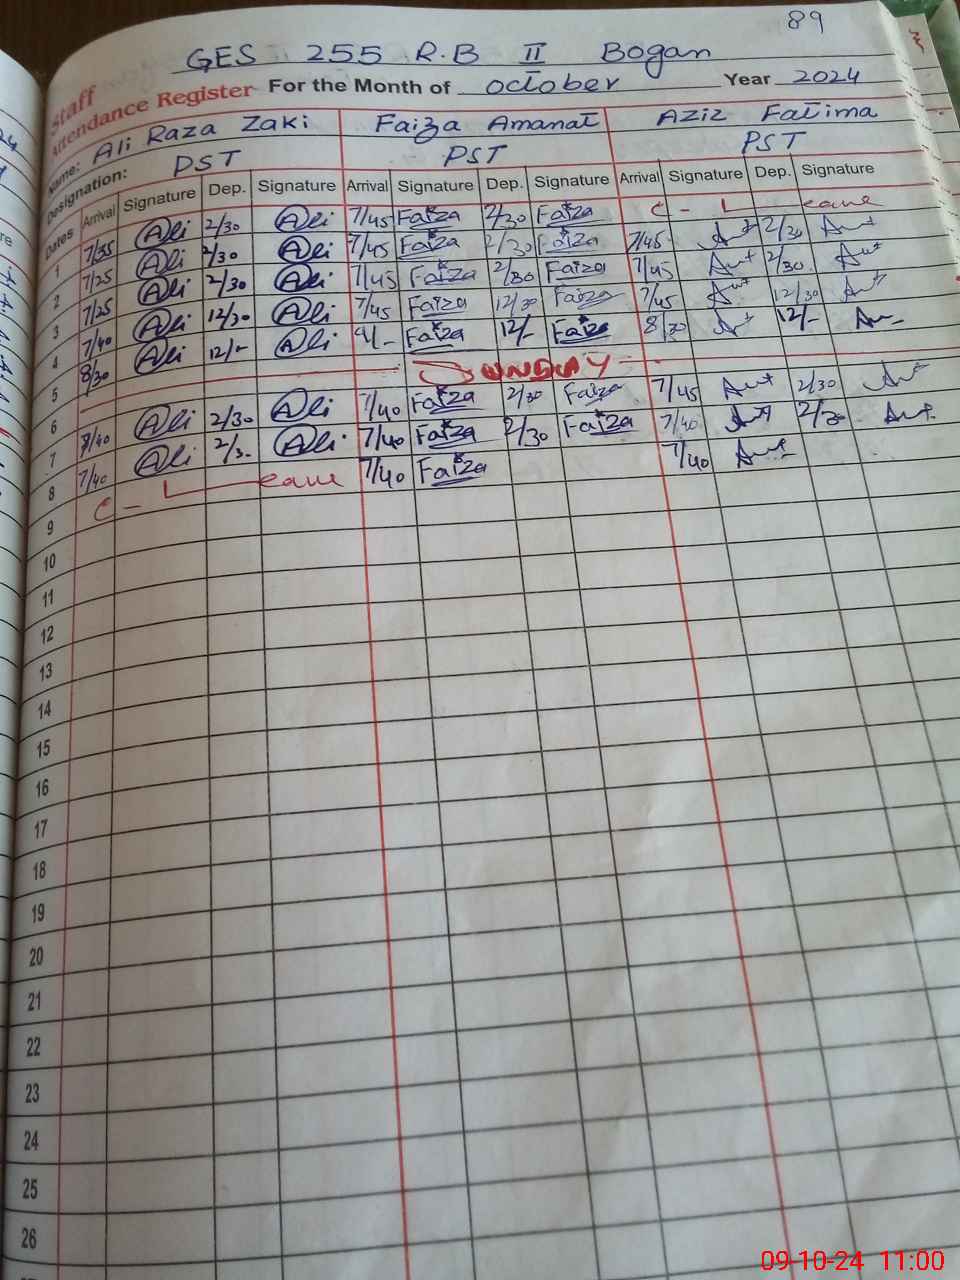 89
GES 255 R.B II Bogan
Staff
Attendance Register For the Month of october Year 2024
Name: Ali Raza Zaki Faiza Amanat Aziz Fatima
Designation: PST PST PST
Dates Arrival Signature Dep. Signature Arrival Signature Dep. Signature Arrival Signature Dep. Signature
1 7/35 Ali 2/30 Ali 7/45 Faiza 2/30 Faiza C - Leave
2 7/25 Ali 2/30 Ali 7/45 Faiza 2/30 Faiza 7/45 2/30
3 7/25 Ali 2/30 Ali 7/45 Faiza 2/30 Faiza 7/45 2/30
4 7/40 Ali 12/30 Ali 7/45 Faiza 12/30 Faiza 7/45 12/30
5 8/30 Ali 12/- Ali Faiza 12/- Faiza 8/30 12/-
6 SUNDAY
7 7/40 Ali 2/30 Ali 7/40 Faiza 2/30 Faiza 7/45 2/30
8 7/40 Ali 2/3. Ali 7/40 Faiza 2/30 Faiza 7/40 2/30
9 C - Leave 7/40 Faiza 7/40
10
11
12
13
14
15
16
17
18
19
20
21
22
23
24
25
26
09-10-24 11:00